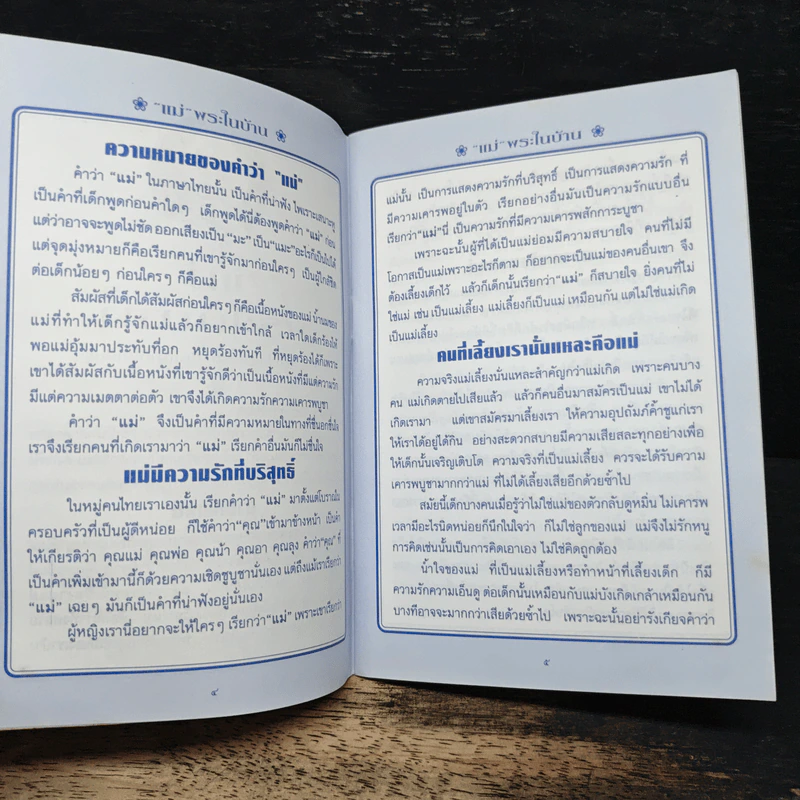 "แม่" พระในบ้าน
ความหมายของคำว่า "แม่"
คำว่า "แม่" ในภาษาไทยนั้น เป็นคำที่น่าฟัง ไพเราะเสนาะหู
เป็นคำที่เด็กพูดก่อนคำใดๆ เด็กพูดได้นี่ต้องพูดคำว่า "แม่" ก่อน
แต่ว่าอาจจะพูดไม่ชัด ออกเสียงเป็น "มะ" เป็น "แมะ" อะไรก็เป็นไปได้
แต่จุดมุ่งหมายก็คือเรียกคนที่เขารู้จักมาก่อนใครๆ เป็นผู้ใกล้ชิด
ต่อเด็กน้อยๆ ก่อนใครๆ ก็คือแม่
สัมผัสที่เด็กได้สัมผัสก่อนใครๆ ก็คือเนื้อหนังของแม่ น้ำนมของ
แม่ที่ทำให้เด็กรู้จักแม่แล้วก็อยากเข้าใกล้ เวลาใดเด็กร้องไห้
พอแม่อุ้มมาประทับที่อก หยุดร้องทันที ที่หยุดร้องได้ก็เพราะ
เขาได้สัมผัสกับเนื้อหนังที่เขารู้จักดีว่าเป็นเนื้อหนังที่มีแต่ความรัก
มีแต่ความเมตตาต่อตัว เขาจึงได้เกิดความรักความเคารพบูชา
คำว่า "แม่" จึงเป็นคำที่มีความหมายในทางที่ชื่นอกชื่นใจ
เราจึงเรียกคนที่เกิดเรามาว่า "แม่" เรียกคำอื่นมันก็ไม่ชื่นใจ
แม่มีความรักที่บริสุทธิ์
ในหมู่คนไทยเราเองนั้น เรียกคำว่า "แม่" มาตั้งแต่โบราณใน
ครอบครัวที่เป็นผู้ดีหน่อย ก็ใช้คำว่า "คุณ" เข้ามาข้างหน้า เป็นคำ
ให้เกียรติว่า คุณแม่ คุณพ่อ คุณน้า คุณอา คุณลุง คำว่า "คุณ" ที่
เป็นคำเพิ่มเข้ามานี้ก็ด้วยความเชิดชูบูชานั่นเอง แต่ถึงแม้เราเรียกว่า
"แม่" เฉยๆ มันก็เป็นคำที่น่าฟังอยู่นั่นเอง
ผู้หญิงเรานี่อยากจะให้ใครๆ เรียกว่า "แม่" เพราะเขาเรียกว่า
๔
"แม่" พระในบ้าน
แม่นั้น เป็นการแสดงความรักที่บริสุทธิ์ เป็นการแสดงความรัก ที่
มีความเคารพอยู่ในตัว เรียกอย่างอื่นมันเป็นความรักแบบอื่น
เรียกว่า "แม่"นี่ เป็นความรักที่มีความเคารพสักการะบูชา
เพราะฉะนั้นผู้ที่ได้เป็นแม่ย่อมมีความสบายใจ คนที่ไม่มี
โอกาสเป็นแม่เพราะอะไรก็ตาม ก็อยากจะเป็นแม่ของคนอื่นเขา จึง
ต้องเลี้ยงเด็กไว้ แล้วก็เด็กนั้นเรียกว่า"แม่" ก็สบายใจ ยิ่งคนที่ไม่
ใช่แม่ เช่น เป็นแม่เลี้ยง แม่เลี้ยงก็เป็นแม่ เหมือนกัน แต่ไม่ใช่แม่เกิด
เป็นแม่เลี้ยง
คนที่เลี้ยงเรานั้นแหละคือแม่
ความจริงแม่เลี้ยงนั่นแหละสำคัญกว่าแม่เกิด เพราะคนบาง
คน แม่เกิดตายไปเสียแล้ว แล้วก็คนอื่นมาสมัครเป็นแม่ เขาไม่ได้
เกิดเรามา แต่เขาสมัครมาเลี้ยงเรา ให้ความอุปถัมภ์ค้ำชูแก่เรา
ให้เราได้อยู่ได้กิน อย่างสะดวกสบายมีความเสียสละทุกอย่างเพื่อ
ให้เด็กนั้นเจริญเติบโต ความจริงที่เป็นแม่เลี้ยง ควรจะได้รับความ
เคารพบูชามากกว่าแม่ ที่ไม่ได้เลี้ยงเสียอีกด้วยซ้ำไป
สมัยนี้เด็กบางคนเมื่อรู้ว่าไม่ใช่แม่ของตัวกลับดูหมิ่น ไม่เคารพ
เวลามีอะไรนิดหน่อยก็นึกในใจว่า ก็ไม่ใช่ลูกของแม่ แม่จึงไม่รักหนู
การคิดเช่นนั้นเป็นการคิดเอาเอง ไม่ใช่คิดถูกต้อง
น้ำใจของแม่ ที่เป็นแม่เลี้ยงหรือทำหน้าที่เลี้ยงเด็ก ก็มี
ความรักความเอ็นดู ต่อเด็กนั้นเหมือนกับแม่บังเกิดเกล้าเหมือนกัน
บางทีอาจจะมากกว่าเสียด้วยซ้ำไป เพราะฉะนั้นอย่ารังเกียจคำว่า
๕